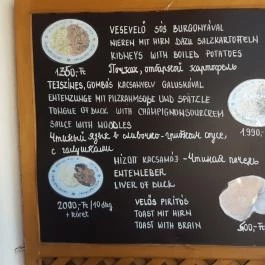 VESEVELŐ SÓS BURGONYÁVAL
NIEREN MIT HIRN DAZU SALZKARTOFFELN
KIDNEYS WITH BOILED POTATOES
1350,- Ft
Почках, отварной картофель
TEJSZÍNES, GOMBÁS KACSANYELV GALUSKÁVAL
ENTENZUNGE MIT PILZRAHMSOßE UND SPÄTZLE
TONGUE OF DUCK WITH CHAMPIGNONSOURCREM
SAUCE WITH NOODLES
1990,-
Утиный язык в сливочно-грибном соусе,
с галушками
HÍZOTT KACSAMÁJ - Утиная печень
ENTENLEBER
LIVER OF DUCK
2000,- Ft/10 dkg
+ köret
VELŐS PIRÍTÓS
TOAST MIT HIRN
TOAST WITH BRAIN
500,- Ft